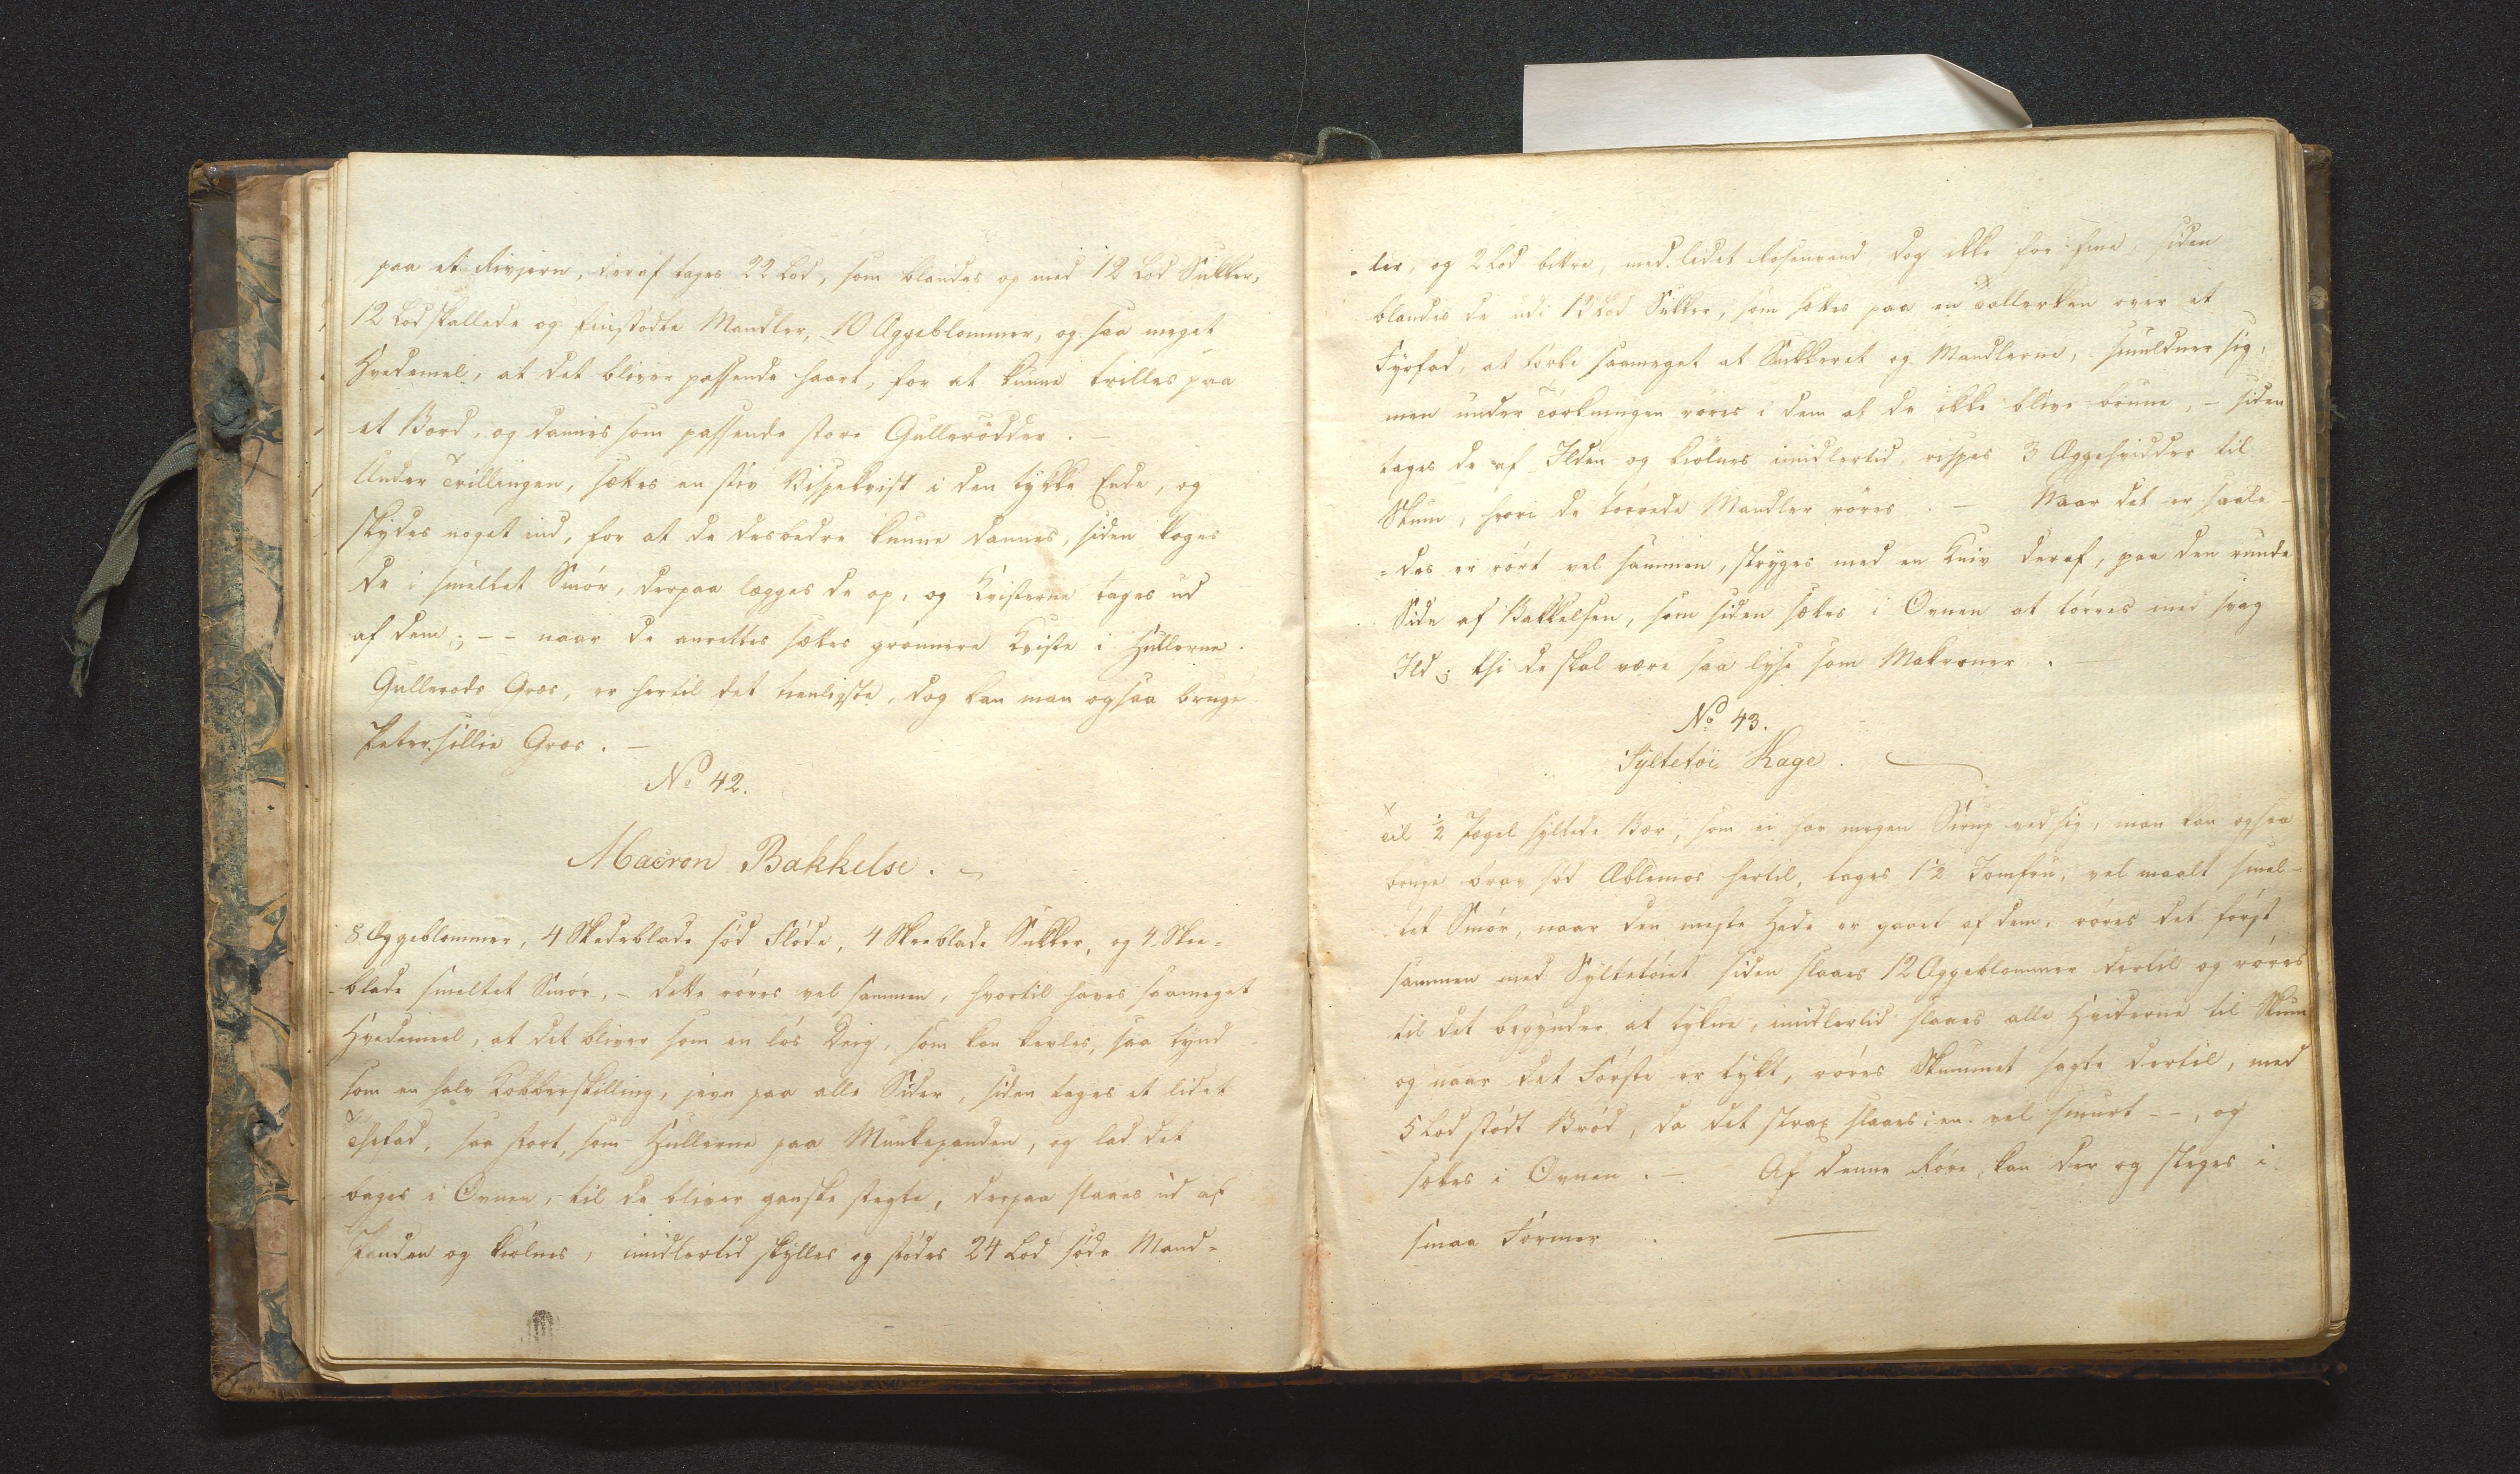 paa et Rivjern, deraf tages 22 Lod, som blandes op med 12 Lod Sukker,
12 Lod skallede og finstødte Mandler, 10 Æggeblommer, og saa meget
Hvedemel, at det bliver passende haart, for at kunne trilles paa
et Bord, og dannes som passende store Gullerødder. –
Under Trillingen, sættes en stiv Vispekvist i den tykke Ende, og
skydes noget ind, for at de desbedre kunne dannes, siden koges
de i smeltet Smør, derpaa lægges de op, og Kvisterne tages ud
af dem; – – naar de anrettes sættes grønnere Kviste i Hullerne.
Gullerods Græs, er hertil det tienligste, dog kan man ogsaa bruge
Petersillie Græs. –
No 42.
Macron Bakkelse.
8 Æggeblommer, 4 Skedeblade sød Fløde, 4 Skeeblade Sukker, og 4 Skee=
blade smeltet Smør, – dette røres vel sammen, hvortil haves saameget
Hvedemeel, at det bliver som en løs Deig, som kan kevles, saa tynd
som en halv Kobberskilling, jevn paa alle Sider, siden tages et lidet
Thefad, saa stort, som Hullerne paa Munkepanden, og lad det
bages i Ovnen, til de bliver ganske stegte, derpaa slaaes ud af
Panden og kiølnes, imidlertid skylles og stødes 24 Lod søde Mand=
=ler, og 2 Lod bittre, med lidet Rosenvand, dog ikke for fine, siden
blandes de udi 13 Lod Sukker, som sættes paa en Tallerken over et
Fyrfad, at tørke saameget at Sukkeret og Mandlerne, smuldrer sig,
men under Tørkningen røres i dem at de ikke blive brune, – siden
tages de af Ilden og kiølnes imidlertid vispes 3 Æggehvidder til
Skum, hvori de tørrede Mandler røres. – Naar det er saale=
=des er rørt vel sammen, stryges med en Kniv deraf, paa den runde
Side af Bakkelsen, som siden sættes i Ovnen at tørres med svag
Ild; thi de skal være saa lyse som Makroner. –
No 43.
Syltetøi Kage.
Til ½ Pægel syltede Bær, som ei har megen Sirup ved sig, man kan ogsaa
bruge brav sød Æblemos hertil, tages 1½ Jomfru, vel maalt smel=
tet Smør, naar den meste Hede er gaaet af dem, røres det først
sammen med Syltetøiet siden slaaes 12 Æggeblommer dertil og røres
til det begynder at tykne, imidlertid slaaes alle Hviderne til Skum
og naar det Første er tykt, røres Skummet sagte dertil, med
5 Lod stødt Brød, da det strax slaaes i en vel smurt – –, og
sættes i Ovnen. – Af denne Røre, kan der og steges i
smaa Former.